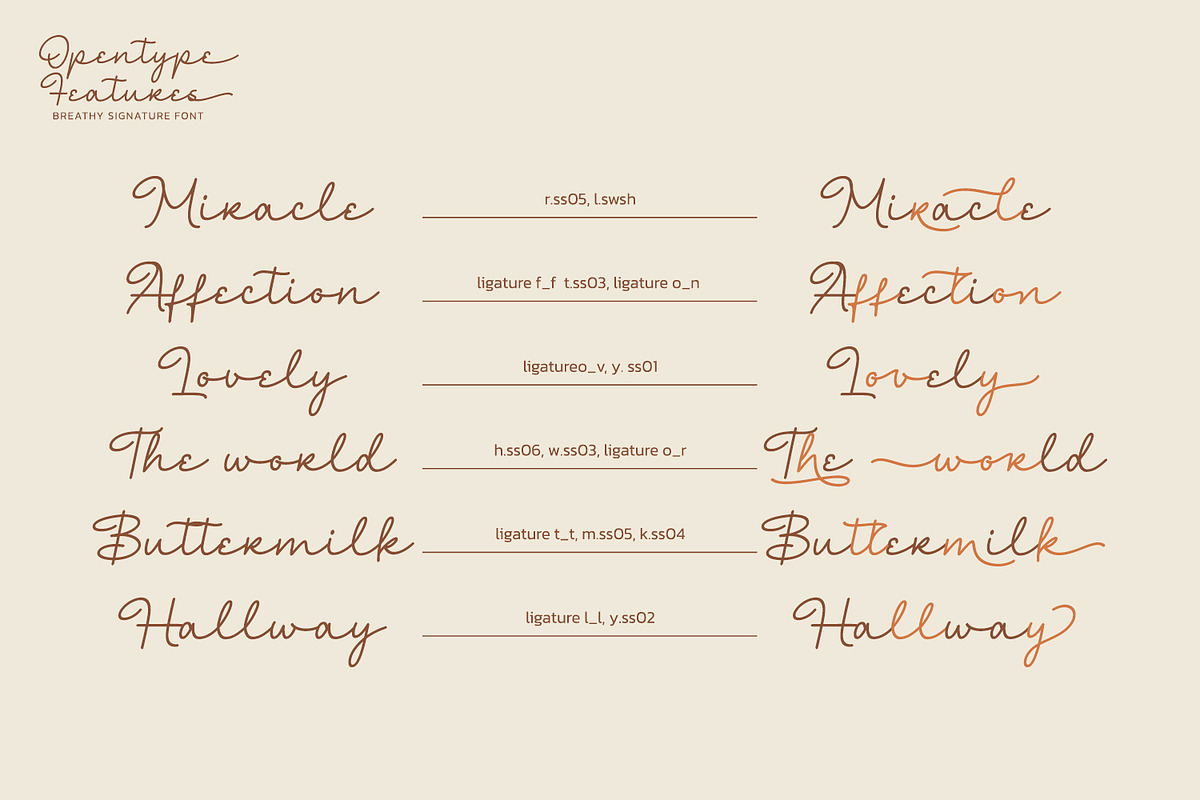 Opentype
Features
BREATHY SIGNATURE FONT
Miracle r.ss05, l.swsh Miracle
Affection ligature f_f t.ss03, ligature o_n Affection
Lovely ligatureo_v, y. ss01 Lovely
The world h.ss06, w.ss03, ligature o_r The world
Buttermilk ligature t_t, m.ss05, k.ss04 Buttermilk
Hallway ligature l_l, y.ss02 Hallway